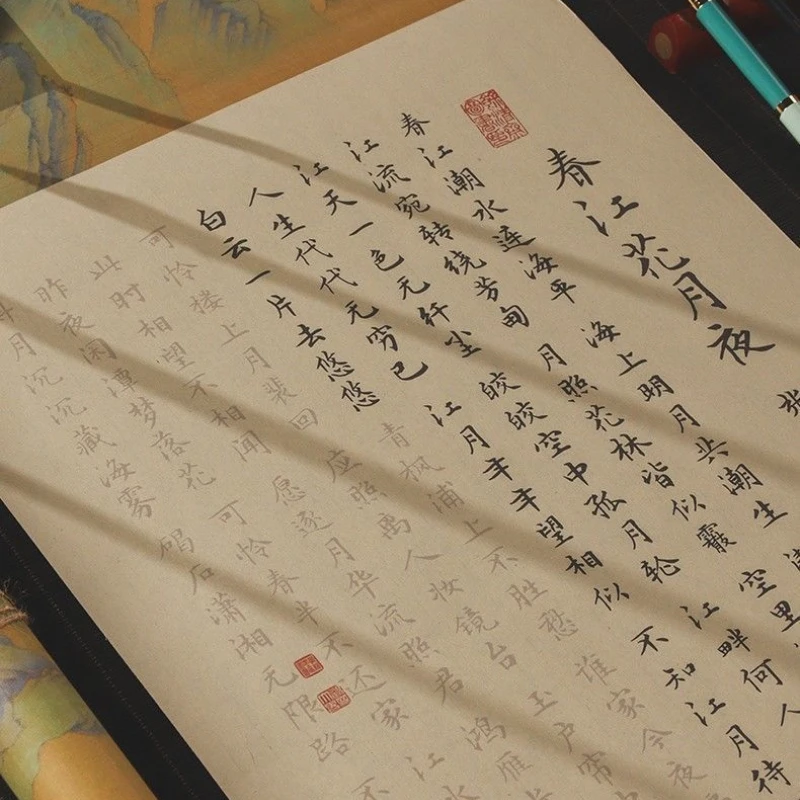 春江花月夜
张
春江潮水连海平 海上明月共潮生
江流宛转绕芳甸 月照花林皆似霰 空里
江天一色无纤尘 皎皎空中孤月轮 江畔何人
人生代代无穷已 江月年年望相似 不知江月待
白云一片去悠悠 青枫浦上不胜愁 谁家今夜
可怜楼上月裴回 应照离人妆镜台 玉户帘中
此时相望不相闻 愿逐月华流照君 鸿雁
昨夜闲潭梦落花 可怜春半不还家 江水
月沉沉藏海雾 碣石潇湘无限路 不